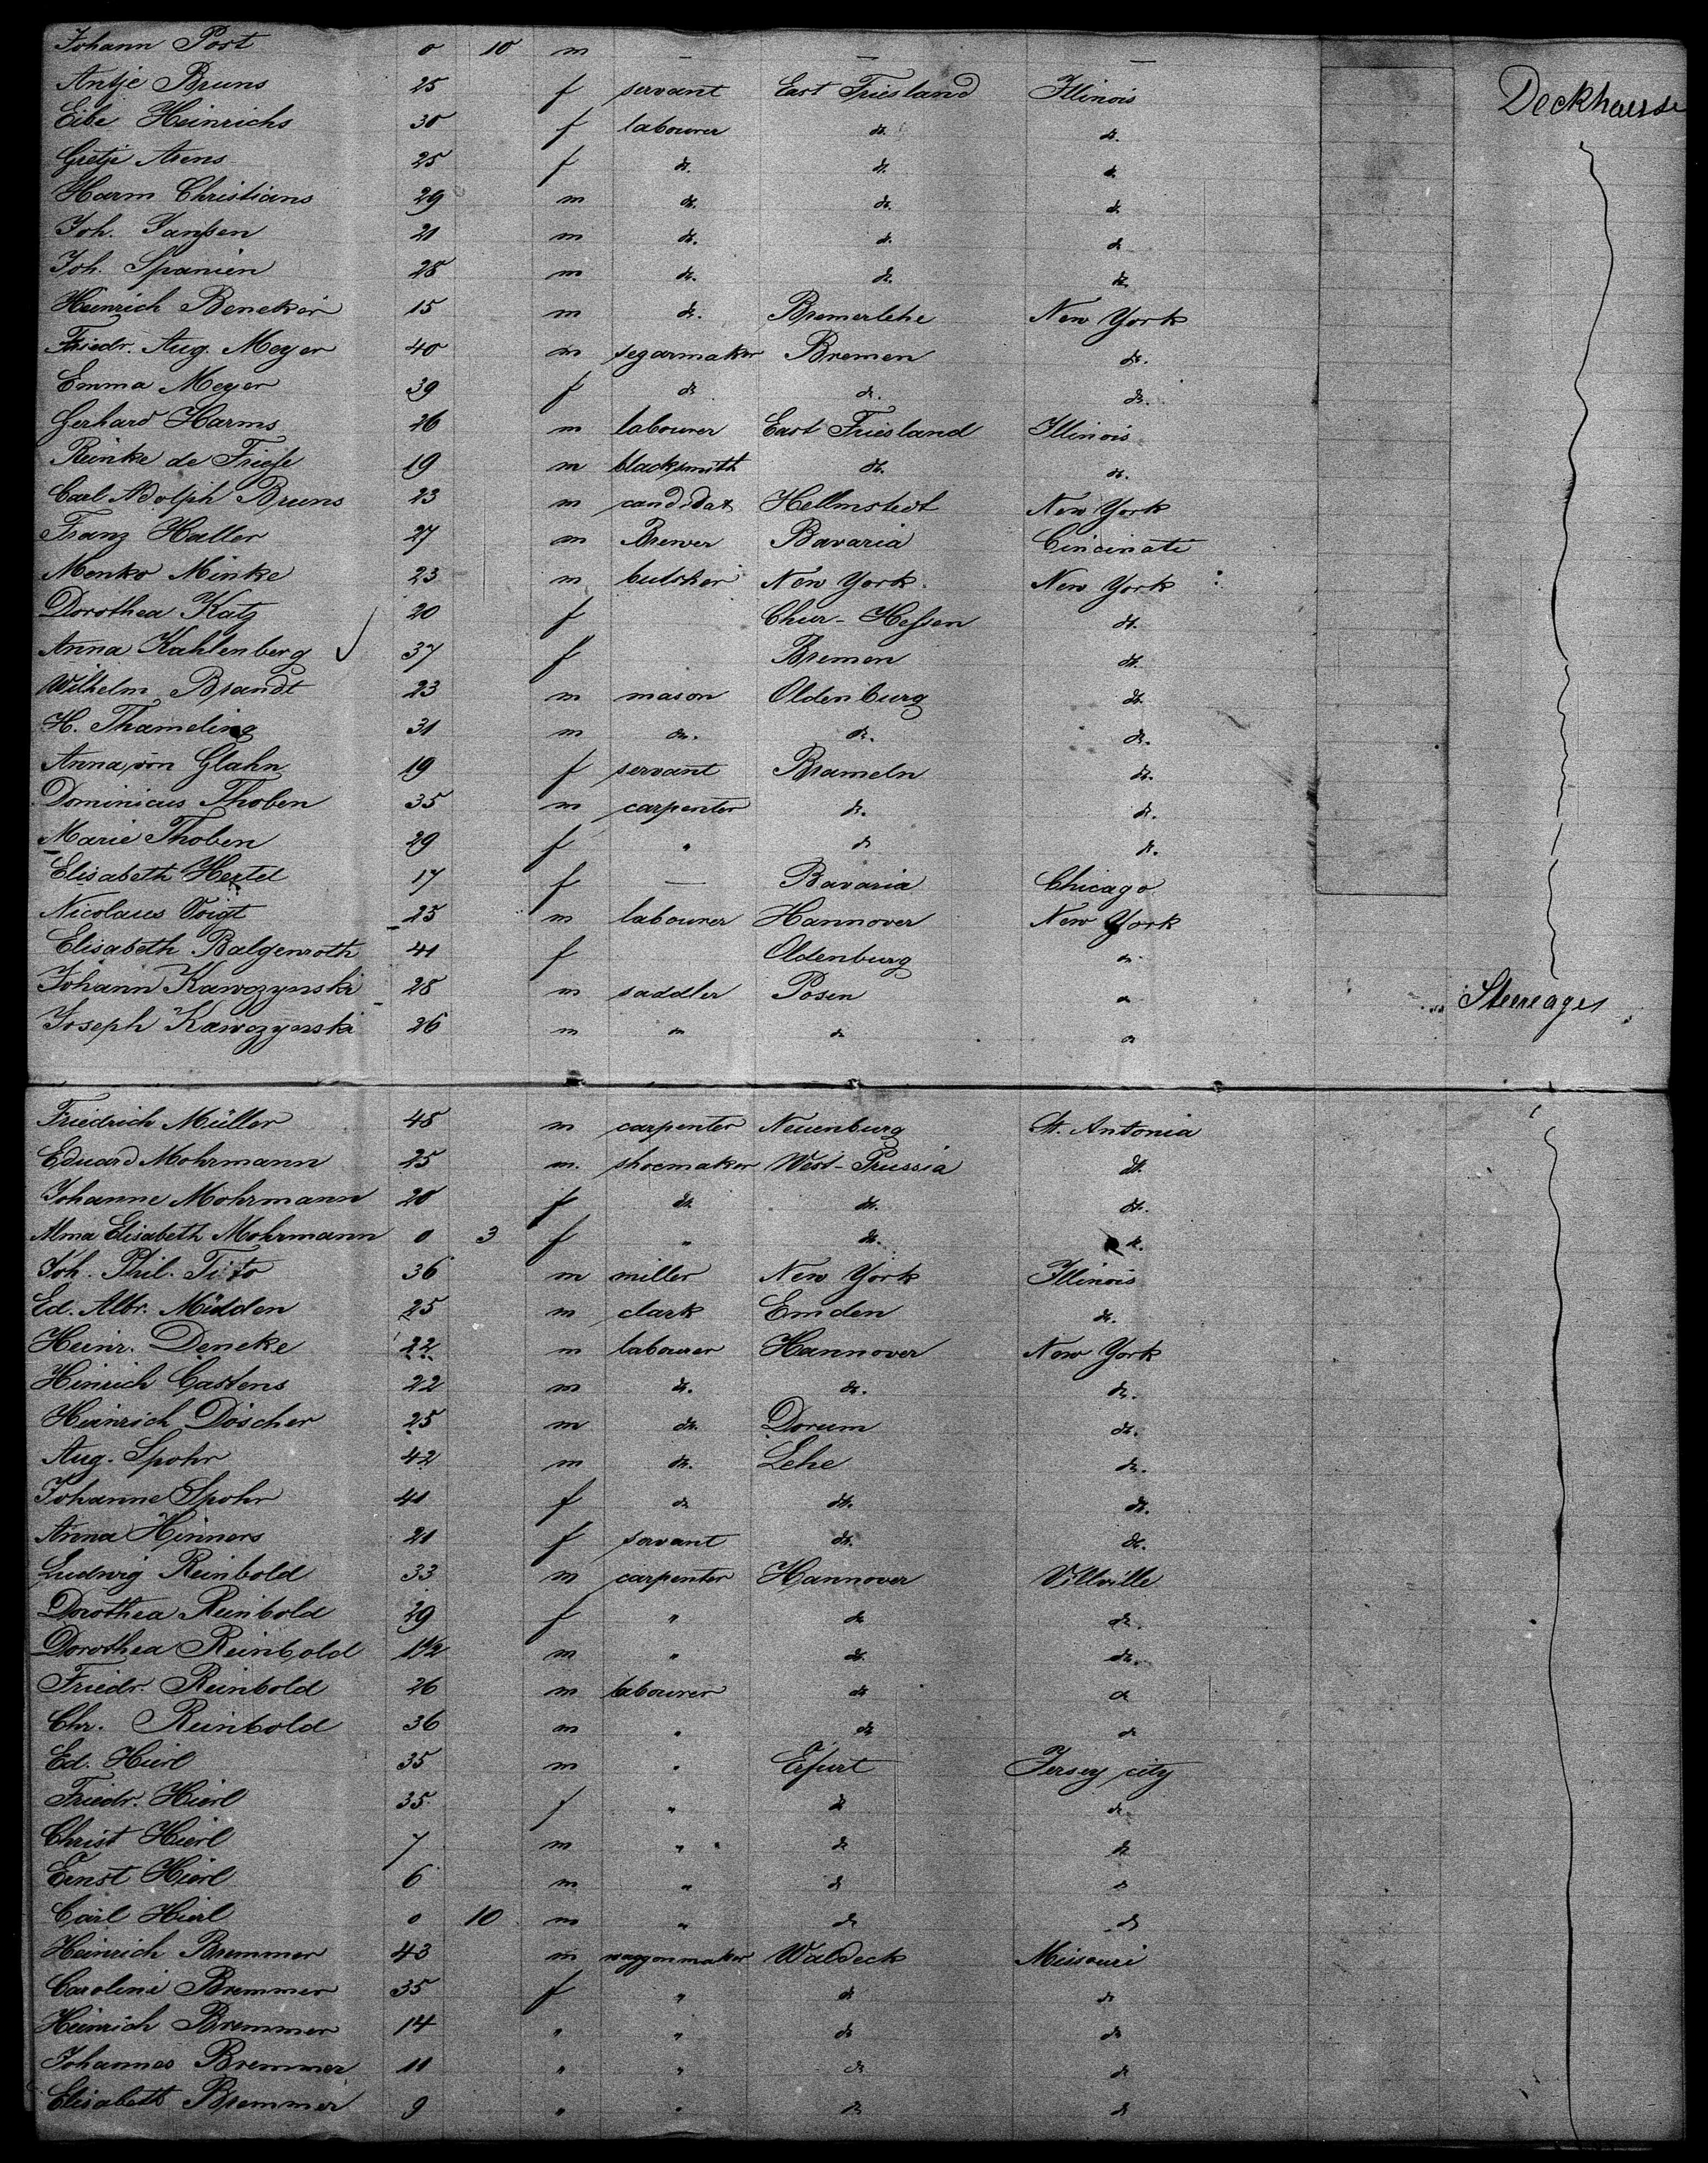 Johann Post 0 10 m — — —
Antje Bruns 25 f servant East Friesland Illinois Deckhause
Eibe Heinrichs 30 f labourer do. do.
Gretje Arens 25 f do. do. do.
Harm Christians 29 m do. do. do.
Joh. Janßen 21 m do. do. do
Joh. Spanien 28 m do. do. do.
Heinrich Beneker 15 m do. Bremerlehe New York
Friedr. Aug. Meyer 40 m segarmaker Bremen do.
Emma Meyer 39 f do do. do.
Gerhard Harms 26 m labourer East Friesland Illinois
Reinke de Frieße 19 m blacksmith do. do.
Carl Adolph Bruns 23 m candidat Hellmstedt New York
Franz Haller 27 m Brewer Bavaria Cincinati
Menko Minke 23 m butsher New York New York
Dorothea Katz 20 f Chur-Heßen do.
Anna Kahlenberg 37 f Bremen do.
Wilhelm Brandt 23 m mason Oldenburg do.
H. Thameling 31 m do. do. do.
Anna von Glahn 19 f servant Brameln do.
Dominicus Thoben 35 m carpenter do. do.
Marie Thoben 29 f " do do.
Elisabeth Hertel 17 f — Bavaria Chicago
Nicolaus Voigt 25 m labourer Hannover New York
Elisabeth Balgenroth 41 f Oldenburg do
Johann Kawczynski 28 m saddler Posen do Steerages
Joseph Kawczynski 26 m do do do
Friedrich Müller 48 m carpenter Neuenburg St. Antonia
Eduard Mohrmann 25 m. shoemaker West-Prussia do.
Johanne Mohrmann 20 f do. do. do.
Alma Elisabeth Mohrmann 0 3 f " do. do.
Joh. Phil. 36 m miller New York Illinois
Ed. Albr. Müdden 25 m clark Emden do.
Heinr. Deneke 22 m labourer Hannover New York
Hinrich Castens 22 m do. do. do.
Heinrich Döscher 25 m do. Dorum do.
Aug. Spohr 42 m do. Lehe do.
Johanne Spohr 41 f do do. do.
Anna Hinners 21 f servant do. do.
Ludwig Reinbold 33 m carpenter Hannover Villville
Dorothea Reinbold 29 f " do do.
Dorothea Reinbold 1 1/2 m " do. do.
Friedr. Reinbold 26 m labourer do do
Chr. Reinbold 36 m " do do
Ed. Hierl 35 m " Erfurt Jersey city
Friedr. Hierl 35 f " do do
Christ Hierl 7 m " do do
Ernst Hierl 6 m " do do
Carl Hierl 0 10 m " do do
Heinrich Bremmer 43 m waggonmaker Waldeck Missouri
Caroline Bremmer 35 f " do do
Heinrich Bremmer 14 " " do do
Johannes Bremmer 11 " " do do
Elisabeth Bremmer 9 " " do do